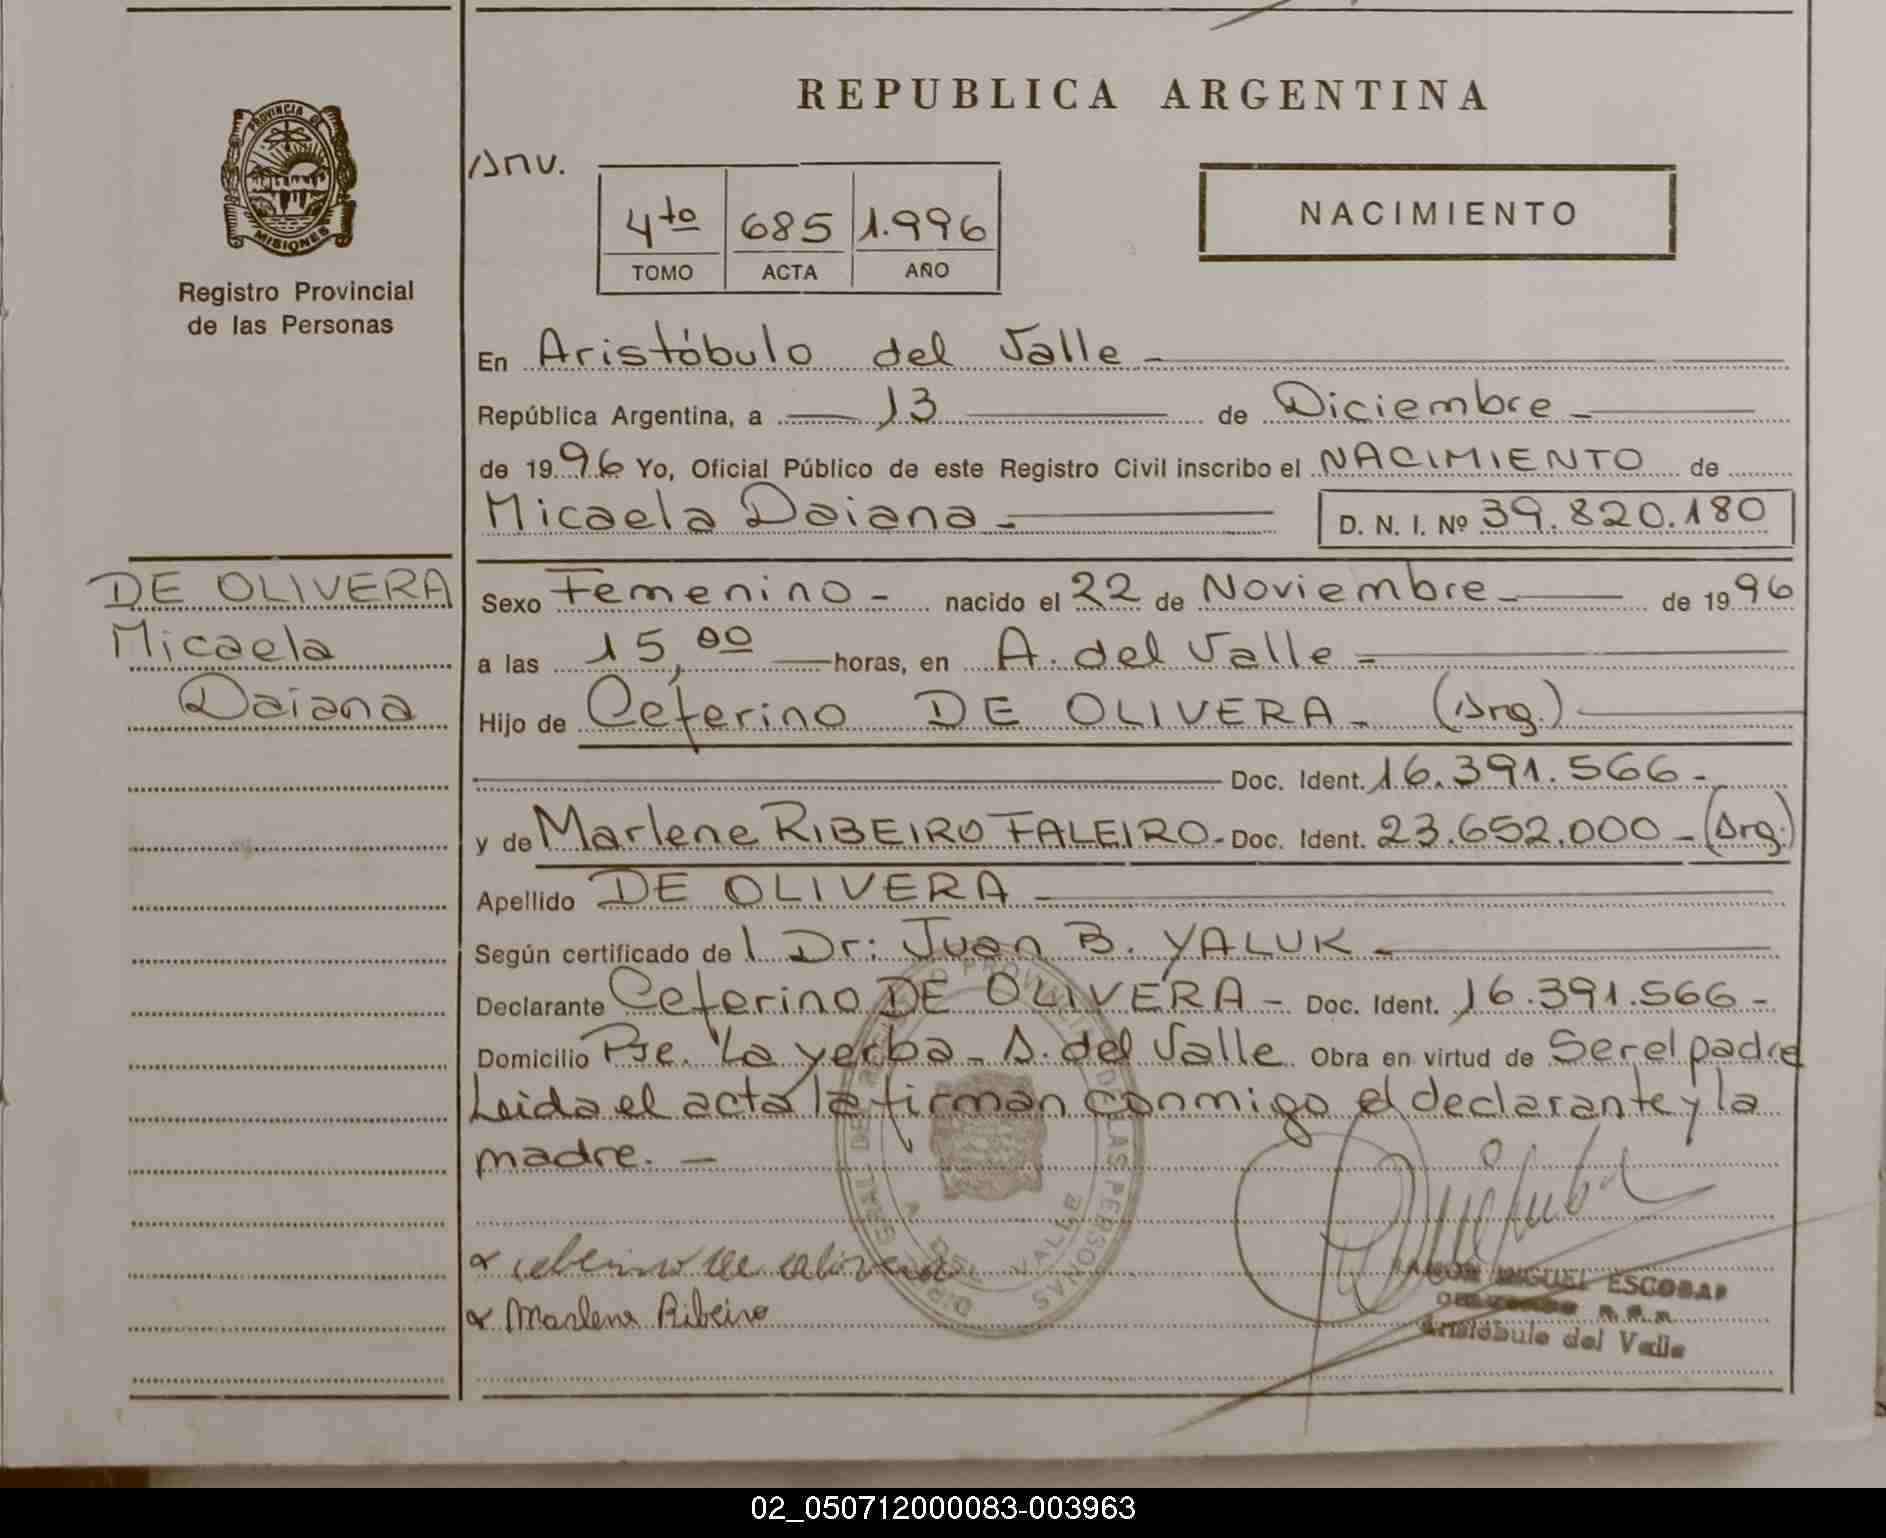 REPUBLICA ARGENTINA
PROVINCIA DE
MISIONES
Registro Provincial
de las Personas
Anv.
4to 685 1.996
TOMO ACTA AÑO
NACIMIENTO
En Aristóbulo del Valle -
República Argentina, a 13 de Diciembre -
de 1996 Yo, Oficial Público de este Registro Civil inscribo el NACIMIENTO de
Micaela Daiana - D. N. I. Nº 39.820.180
DE OLIVERA
Micaela
Daiana
Sexo Femenino - nacido el 22 de Noviembre - de 1996
a las 15,00 horas, en A. del Valle -
Hijo de Ceferino DE OLIVERA - (Arg.)
Doc. Ident. 16.391.566 -
y de Marlene RIBEIRO FALEIRO - Doc. Ident. 23.652.000 - (Arg.)
Apellido DE OLIVERA
Según certificado de l Dr: Juan B. YALUK -
Declarante Ceferino DE OLIVERA - Doc. Ident. 16.391.566 -
Domicilio Pje. "La yerba - A. del Valle Obra en virtud de Ser el padre
Leida el acta la firman conmigo el declarante y la
madre. -
DE LAS PERSONAS
A. DEL VALLE
Marlene Ribeiro
MIGUEL ESCOBAR
Aristóbulo del Valle
02_050712000083-003963